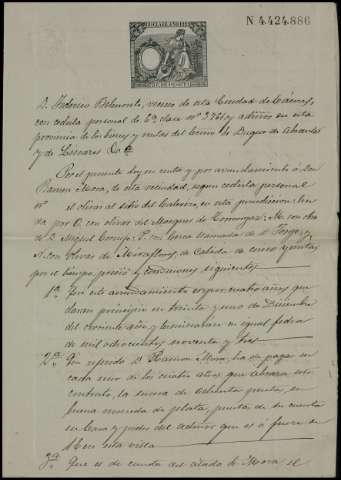 N 4.424.886
D. Federico Belmonte, vecino de esta Ciudad de Cáceres,
con cedula personal de 6ª clase nº 3761 y admor en esta
provincia de los bienes y rentas del Ecsmo Sr Duque de Abrantes
y de Linares &ª
Por el presente doy en renta y por arrendamiento á Don
Ramon Mora, de esta vecindad, segun cedula personal
nº el olivar al sitio del en esta jurisdicion, lin
da por O. con olivar del Marques de M. con otro
de D. Miguel Cornejo, P. con cerca llamada de Sr
N. con de Miraflores, de Calada de cerca y juntas
por el tiempo, precio y condiciones siguientes
1ª Que este arrendamiento es por cuatro años que
daran principio en treinta y uno de Diciembre
del corriente año y terminaran en igual fecha
de mil ochocientos noventa y tres
2ª Que referido D. Ramon Mora, ha de pagar en
cada uno de los cuatro años que abraza este
contrato, la suma de ochenta pesetas, en
buena moneda de plata, puesta de su cuenta
en casa y poder del admor que es ó fuere de
S.E. en esta villa
3ª Que es de cuenta del citado Sr Mora el